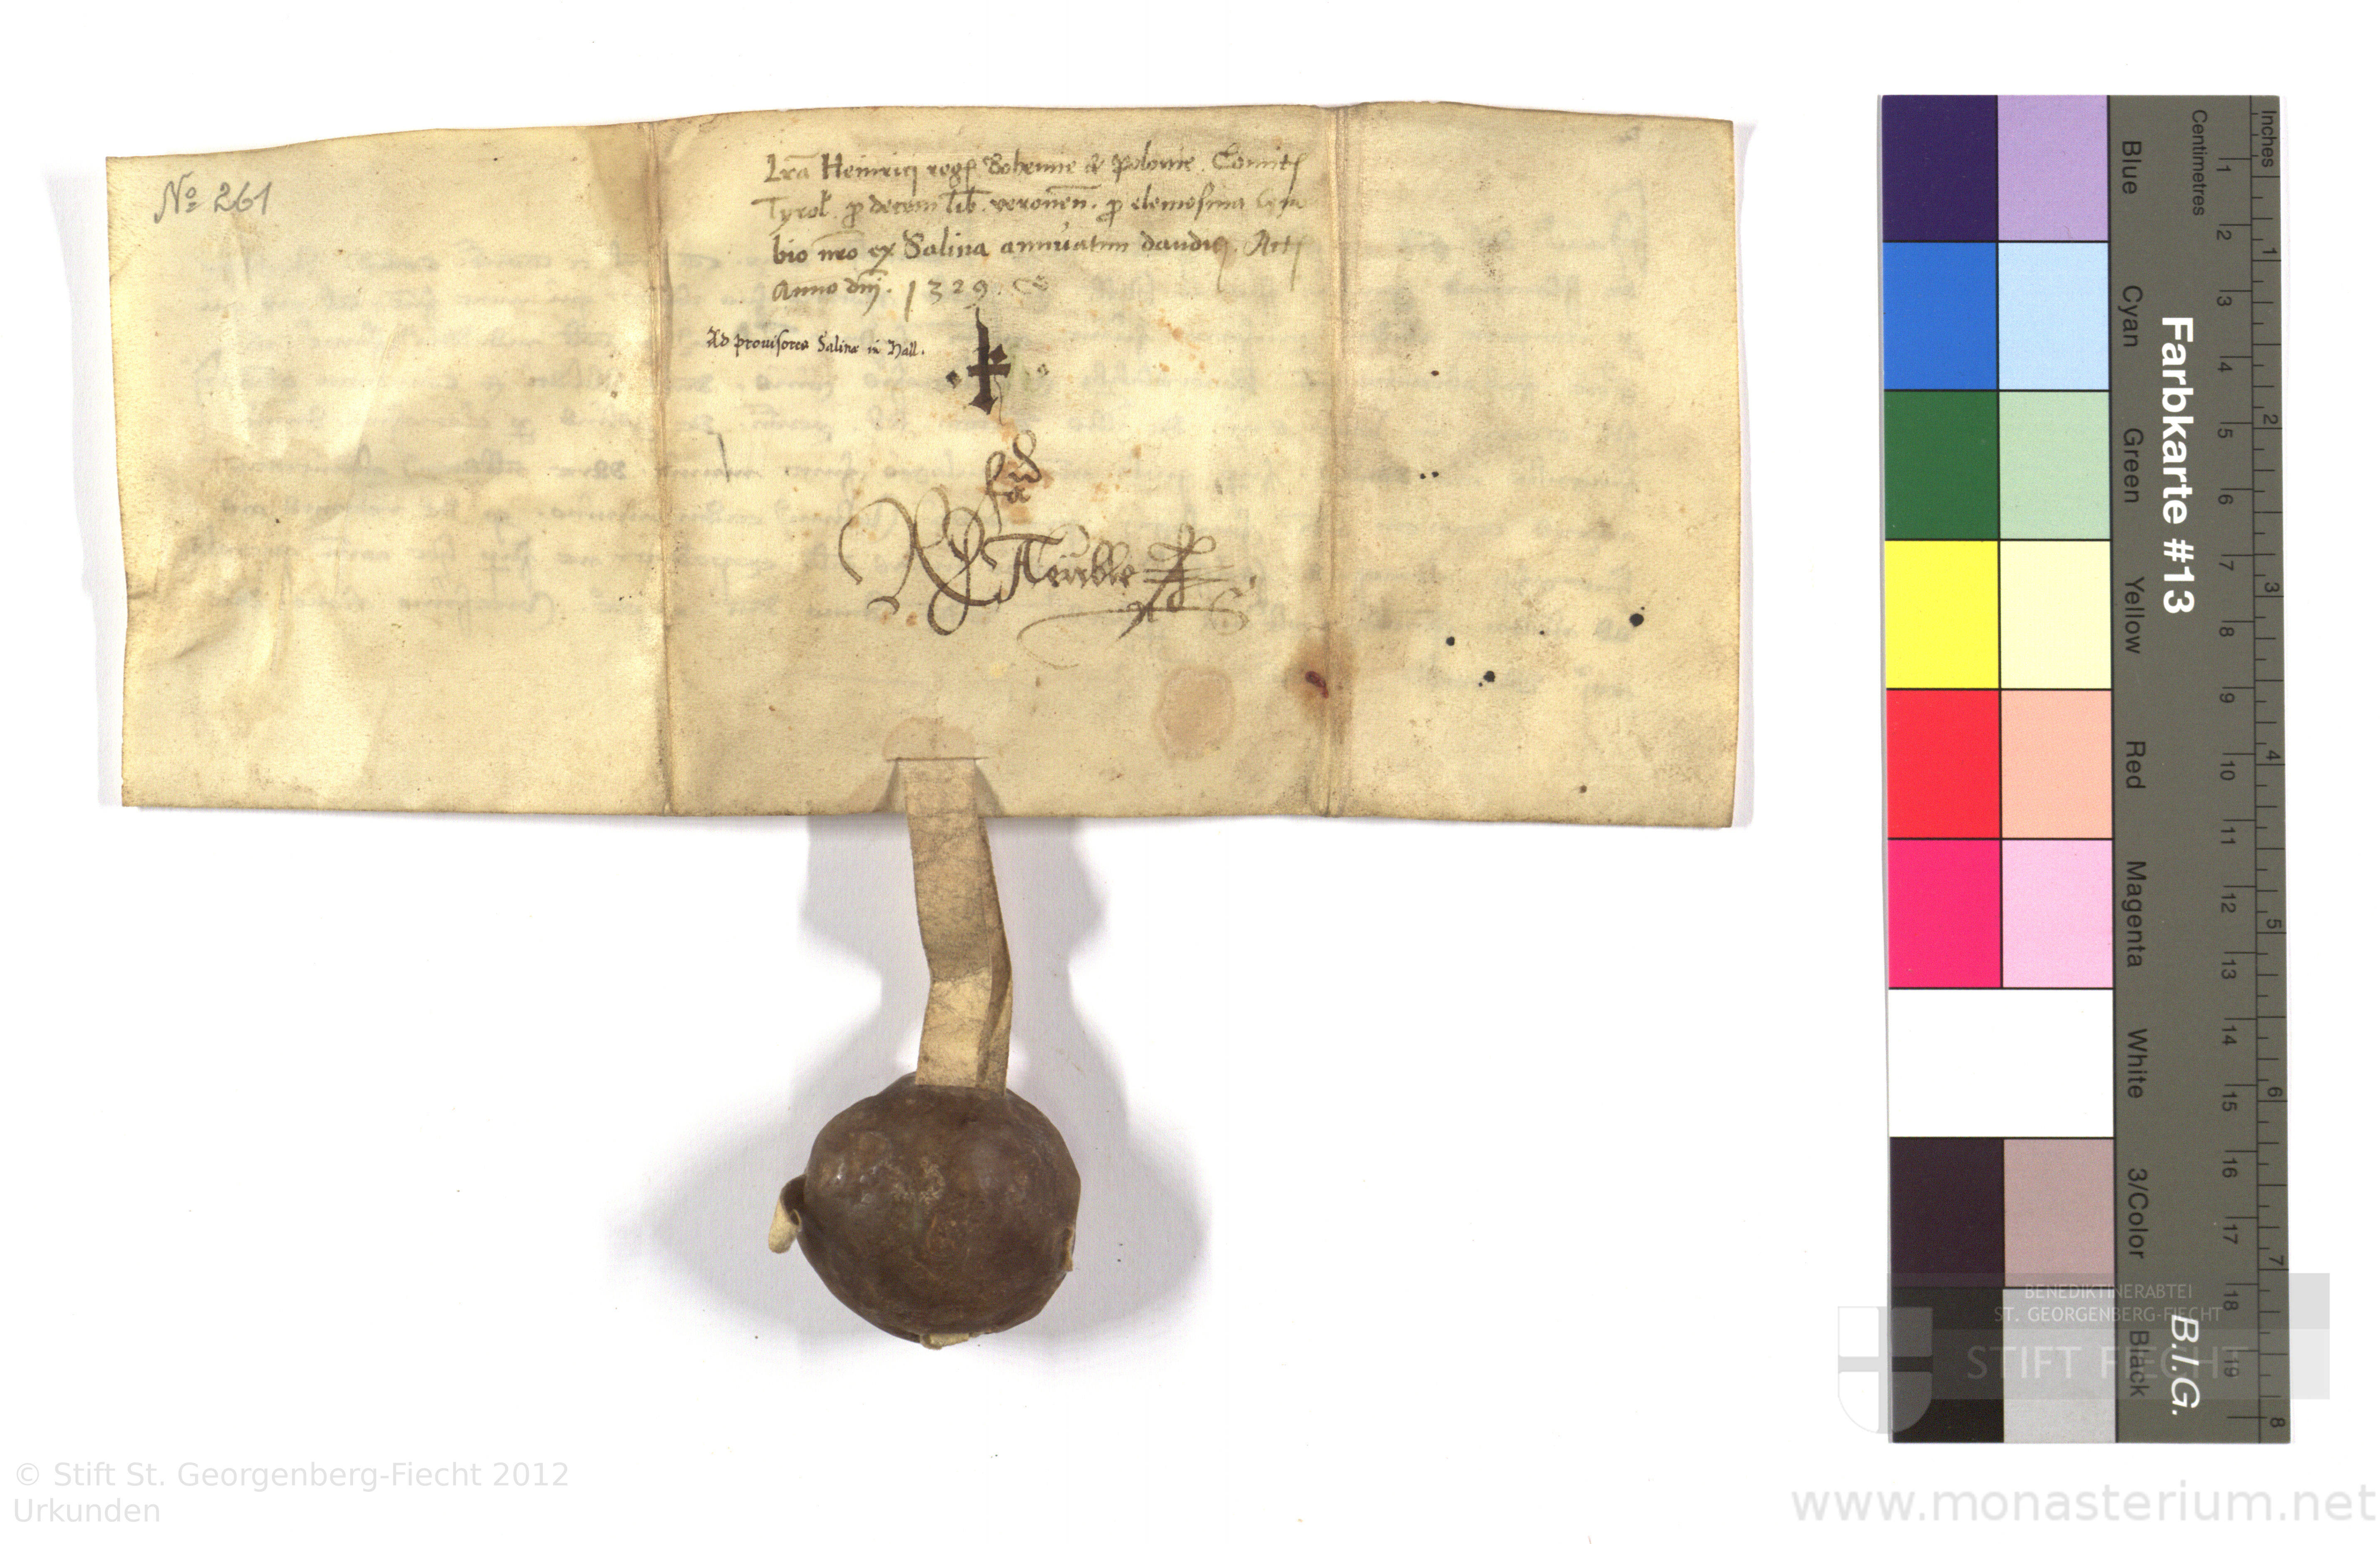 No 261
Lrā Heinrici regꝭ Bohemie & Polonie. Comitꝭ
Tyrol. ꝓ decem lib. veronēn. ꝓ elemosina
bio nrō ex Salina annuatim dandis. Actꝭ
Anno dnj. 1329.
Ad prouisores Salinæ in Hall.
Blue
Cyan
Green
Yellow
Red
Magenta
White
3/Color
Black
Farbkarte #13
B.I.G.
Centimetres
1 2 3 4 5 6 7 8 9 10 11 12 13 14 15 16 17 18 19
Inches
1 2 3 4 5 6 7 8
BENEDIKTINERABTEI
ST. GEORGENBERG-FIECHT
STIFT FIECHT
© Stift St. Georgenberg-Fiecht 2012
Urkunden
www.monasterium.net